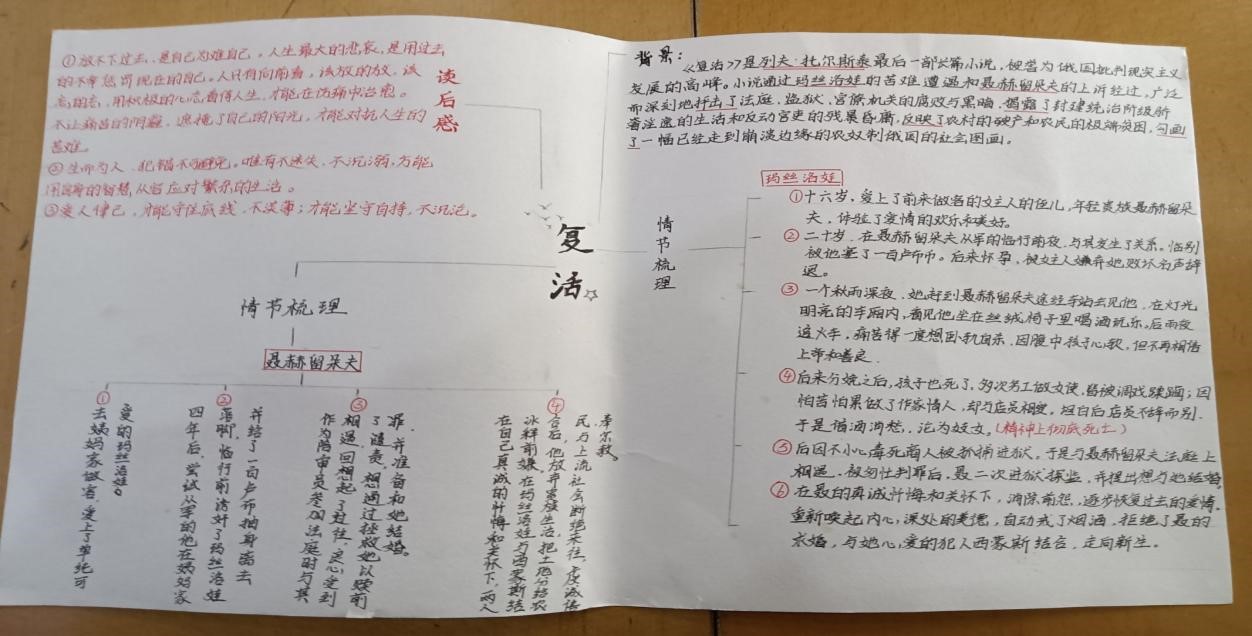 读后感
①放不下过去，是自己为难自己。人生最大的悲哀，是用过去
的不幸惩罚现在的自己。人只有向前看，该放的放，该
忘的忘，用积极的心态看待人生，才能在伤痛中治愈。
不让痛苦的阴霾，遮掩了自己的阳光，才能对抗人生的
苦难。
②生而为人，犯错不可避免。唯有不迷失，不沉溺，方能
用的智慧，从容应对繁杂的生活。
③爱人律己，才能守住底线，不淡薄；才能坚守自持，不沉沦。
复活
背景：
《复活》是列夫·托尔斯泰最后一部长篇小说，被誉为俄国批判现实主义
发展的高峰。小说通过玛丝洛娃的苦难遭遇和聂赫留朵夫的上诉经过，广泛
而深刻地抨击了法庭、监狱、官僚机关的腐败与黑暗，揭露了封建统治阶级骄
奢淫逸的生活和反动官吏的残暴昏庸，反映了农村的破产和农民的极端贫困，勾画
了一幅已经走到崩溃边缘的农奴制俄国的社会图画。
情节梳理
玛丝洛娃
①十六岁，爱上了前来做客的女主人的侄儿，年轻贵族聂赫留朵
夫，体验了爱情的欢乐和美好。
②二十岁，在聂赫留朵夫从军的临行前夜，与其发生了关系。临别
被他塞了一百卢布币。后来怀孕，被女主人嫌弃她败坏名声辞
退。
③一个秋雨深夜，她赶到聂赫留朵夫途经车站去见他，在灯光
明亮的车厢内，看见他坐在丝绒椅子里喝酒玩乐。后雨夜
追火车，痛苦得一度想卧轨自杀，因腹中孩子心软，但不再相信
上帝和善良。
④后来分娩之后，孩子也死了，多次务工做女使，皆被调戏蹂躏；因
怕苦怕累做了作家情人，却与店员相爱，坦白后店员不辞而别，
于是借酒消愁，沦为妓女。（精神上彻底死亡）
⑤后因不小心毒死商人被捕进狱，于是与聂赫留朵夫法庭上
相遇。被匆忙判罪后，聂二次进狱探监，并提出想与她结婚。
⑥在聂的真诚忏悔和关怀下，消除前怨，逐步恢复过去的爱情。
重新唤起内心深处的美德，自动戒了烟酒，拒绝了聂的
求婚，与她心爱的犯人西蒙斯结合，走向新生。
情节梳理
聂赫留朵夫
①去姨妈家做客，爱上了单纯可
爱的玛丝洛娃。
②四年后，尝试从军的他在姨妈家
落脚，临行前诱奸了玛丝洛娃
并给了一百卢布抽身离去
③作为陪审员参加法庭时与其
相遇，回想起了过往，良心受到
了谴责，想通过拯救她以赎前
罪，并准备和她结婚。
④在自己真诚的忏悔和关怀下，两人
冰释前嫌。在玛丝洛娃与西蒙斯结
合后，他放弃贵族生活，把土地分给农
民与上流社会断绝来往，虔诚信
奉宗教。